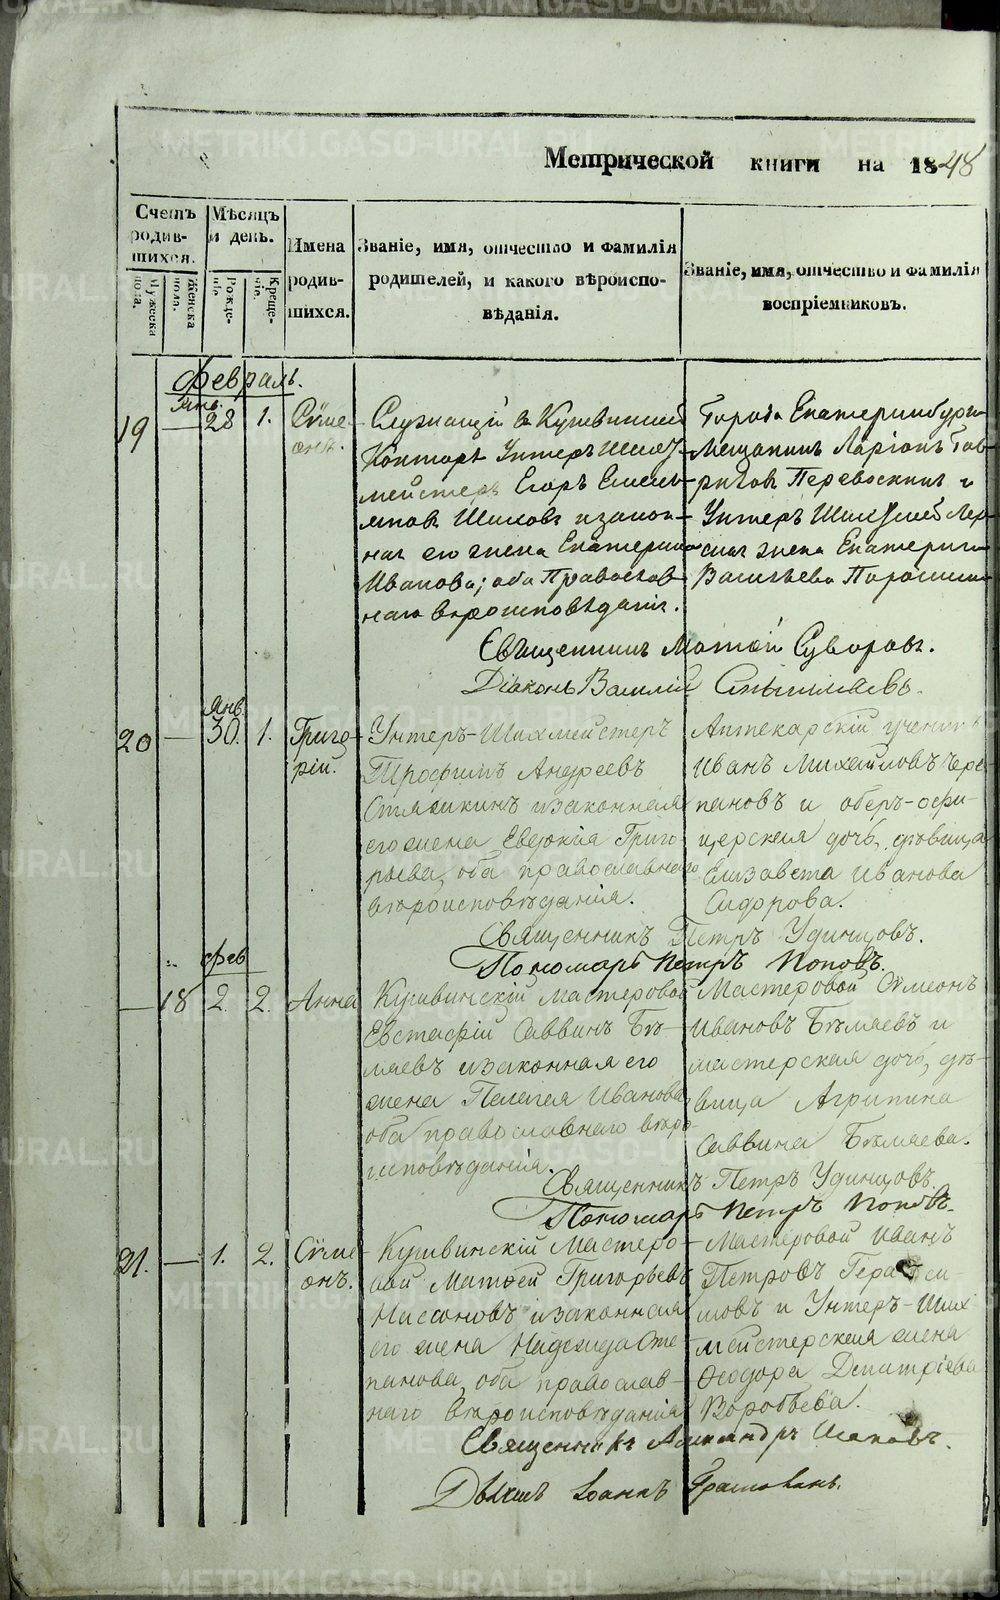 METRIKI.GASO-URAL.RU
Метрической книги на 1848
Счетъ родив- шихся.
Мѣсяцъ и день.
Имена родив- шихся.
Званіе, имя, отчество и фамилія родителей, и какого вѣроиспо- вѣданія.
Званіе, имя, отчество и фамилія воспріемниковъ.
Мужеска пола.
Женска пола.
Рожде- нія.
Креще- нія.
Февраль.
Янв.
19 — 28 1. Сѵме- онъ.
Служащій въ Кушвинской
Конторѣ Унтеръ Шихт-
мейстеръ Егоръ Емель-
яновъ Шиловъ и закон-
ная его жена Екатерина
Иванова; оба Православ-
наго вѣроисповѣданія.
Города Екатеринбурга
Мещанинъ Ларіонъ Гав-
риловъ Перевоскинъ и
Унтеръ Шихт
жена Екатерина
Васильева
Священникъ Матѳій Суворовъ.
Діаконъ Василій
Янв.
20 — 30. 1. Григо- рій.
Унтеръ-Шихмейстеръ
Трофимъ Андреевъ
Стяжкинъ и законная
его жена Евдокія Григо-
рьева, оба православнаго
вѣроисповѣданія.
Аптекарскій ученикъ
Иванъ Михайловъ Чере-
пановъ и оберъ-офи-
церская дочь, дѣвица
Елизавета Иванова
Сидорова.
Священникъ Петръ Удинцовъ.
Пономарь Петръ Поповъ.
фев
— 18 2. 2. Анна
Кушвинскій мастеровой
Евстафій Саввинъ Бѣ-
ляевъ и законная его
жена Пелагея Иванова,
оба православнаго вѣро-
исповѣданія.
Мастеровой Сѵмеонъ
Ивановъ Бѣляевъ и
мастерская дочь, дѣ-
вица Агрипина
Саввина Бѣляева.
Священникъ Петръ Удинцовъ.
Пономарь Петръ Поповъ.
21. — 1. 2. Сѵме- онъ.
Кушвинскій Мастеро-
вой Матѳей Григорьевъ
и законная
его жена Надежда Сте-
панова, оба православ-
наго вѣроисповѣданія
Мастеровой Иванъ
Петровъ Гераси-
мовъ и Унтеръ-Ших-
мейстерская жена
Ѳеодора Дмитріева
Воробьева.
Священникъ Александръ
Іоаннъ